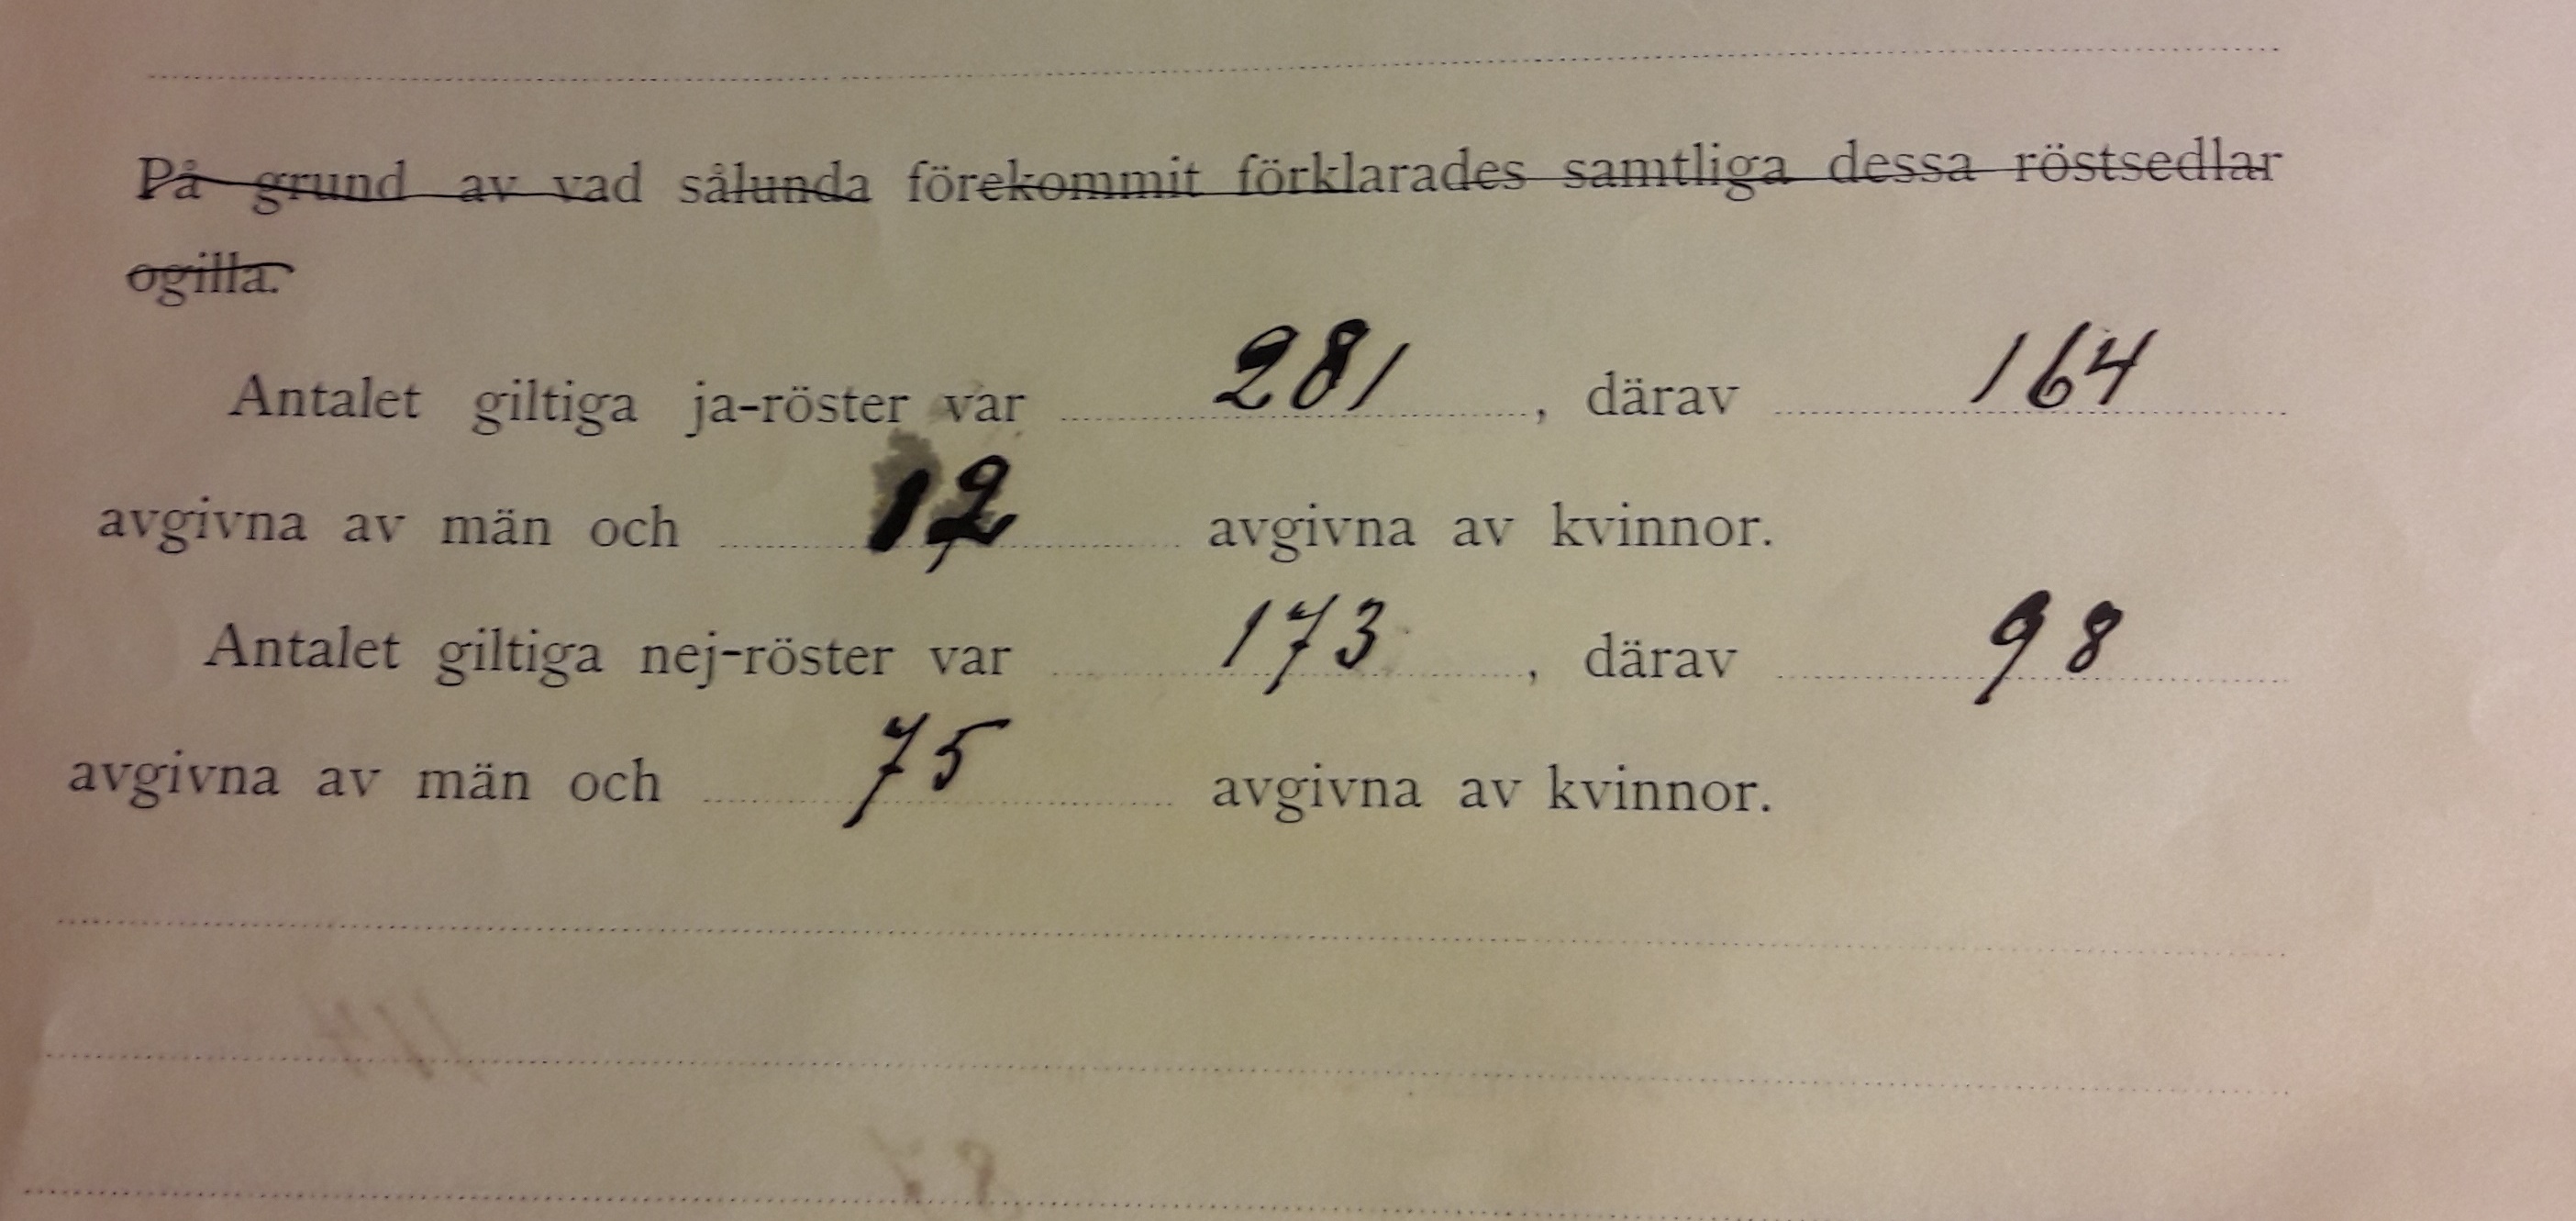 På grund av vad sålunda förekommit förklarades samtliga dessa röstsedlar
ogilla.
Antalet giltiga ja-röster var 281, därav 164
avgivna av män och 12 avgivna av kvinnor.
Antalet giltiga nej-röster var 173, därav 98
avgivna av män och 75 avgivna av kvinnor.